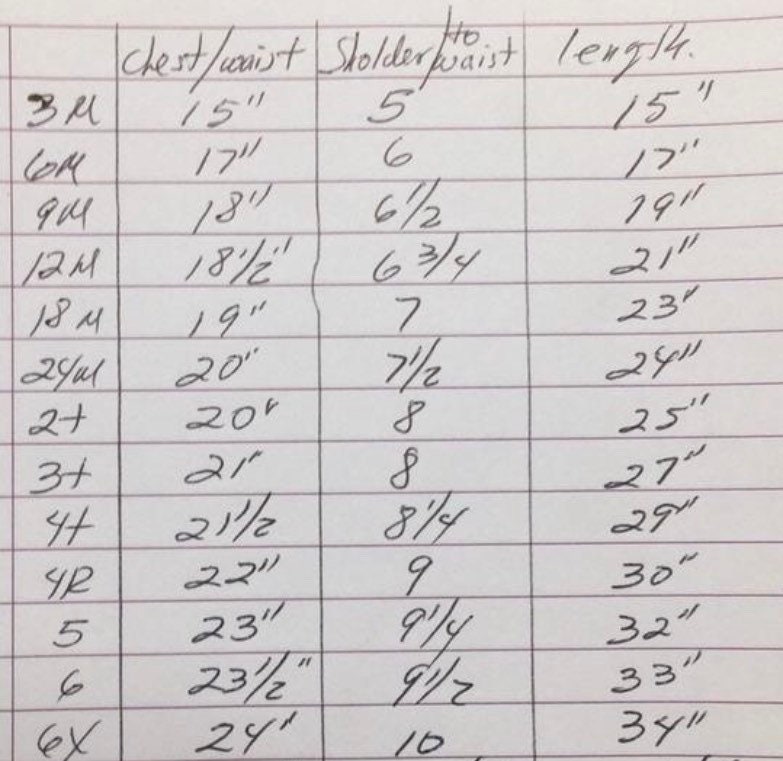 chest/waist Sholder/to waist length.
3M 15" 5 15"
6M 17" 6 17"
9M 18" 6 1/2 19"
12M 18 1/2" 6 3/4 21"
18M 19" 7 23"
24M 20" 7 1/2 24"
2t 20" 8 25"
3t 21" 8 27"
4t 21 1/2 8 1/4 29"
4R 22" 9 30"
5 23" 9 1/4 32"
6 23 1/2" 9 1/2 33"
6X 24" 10 34"